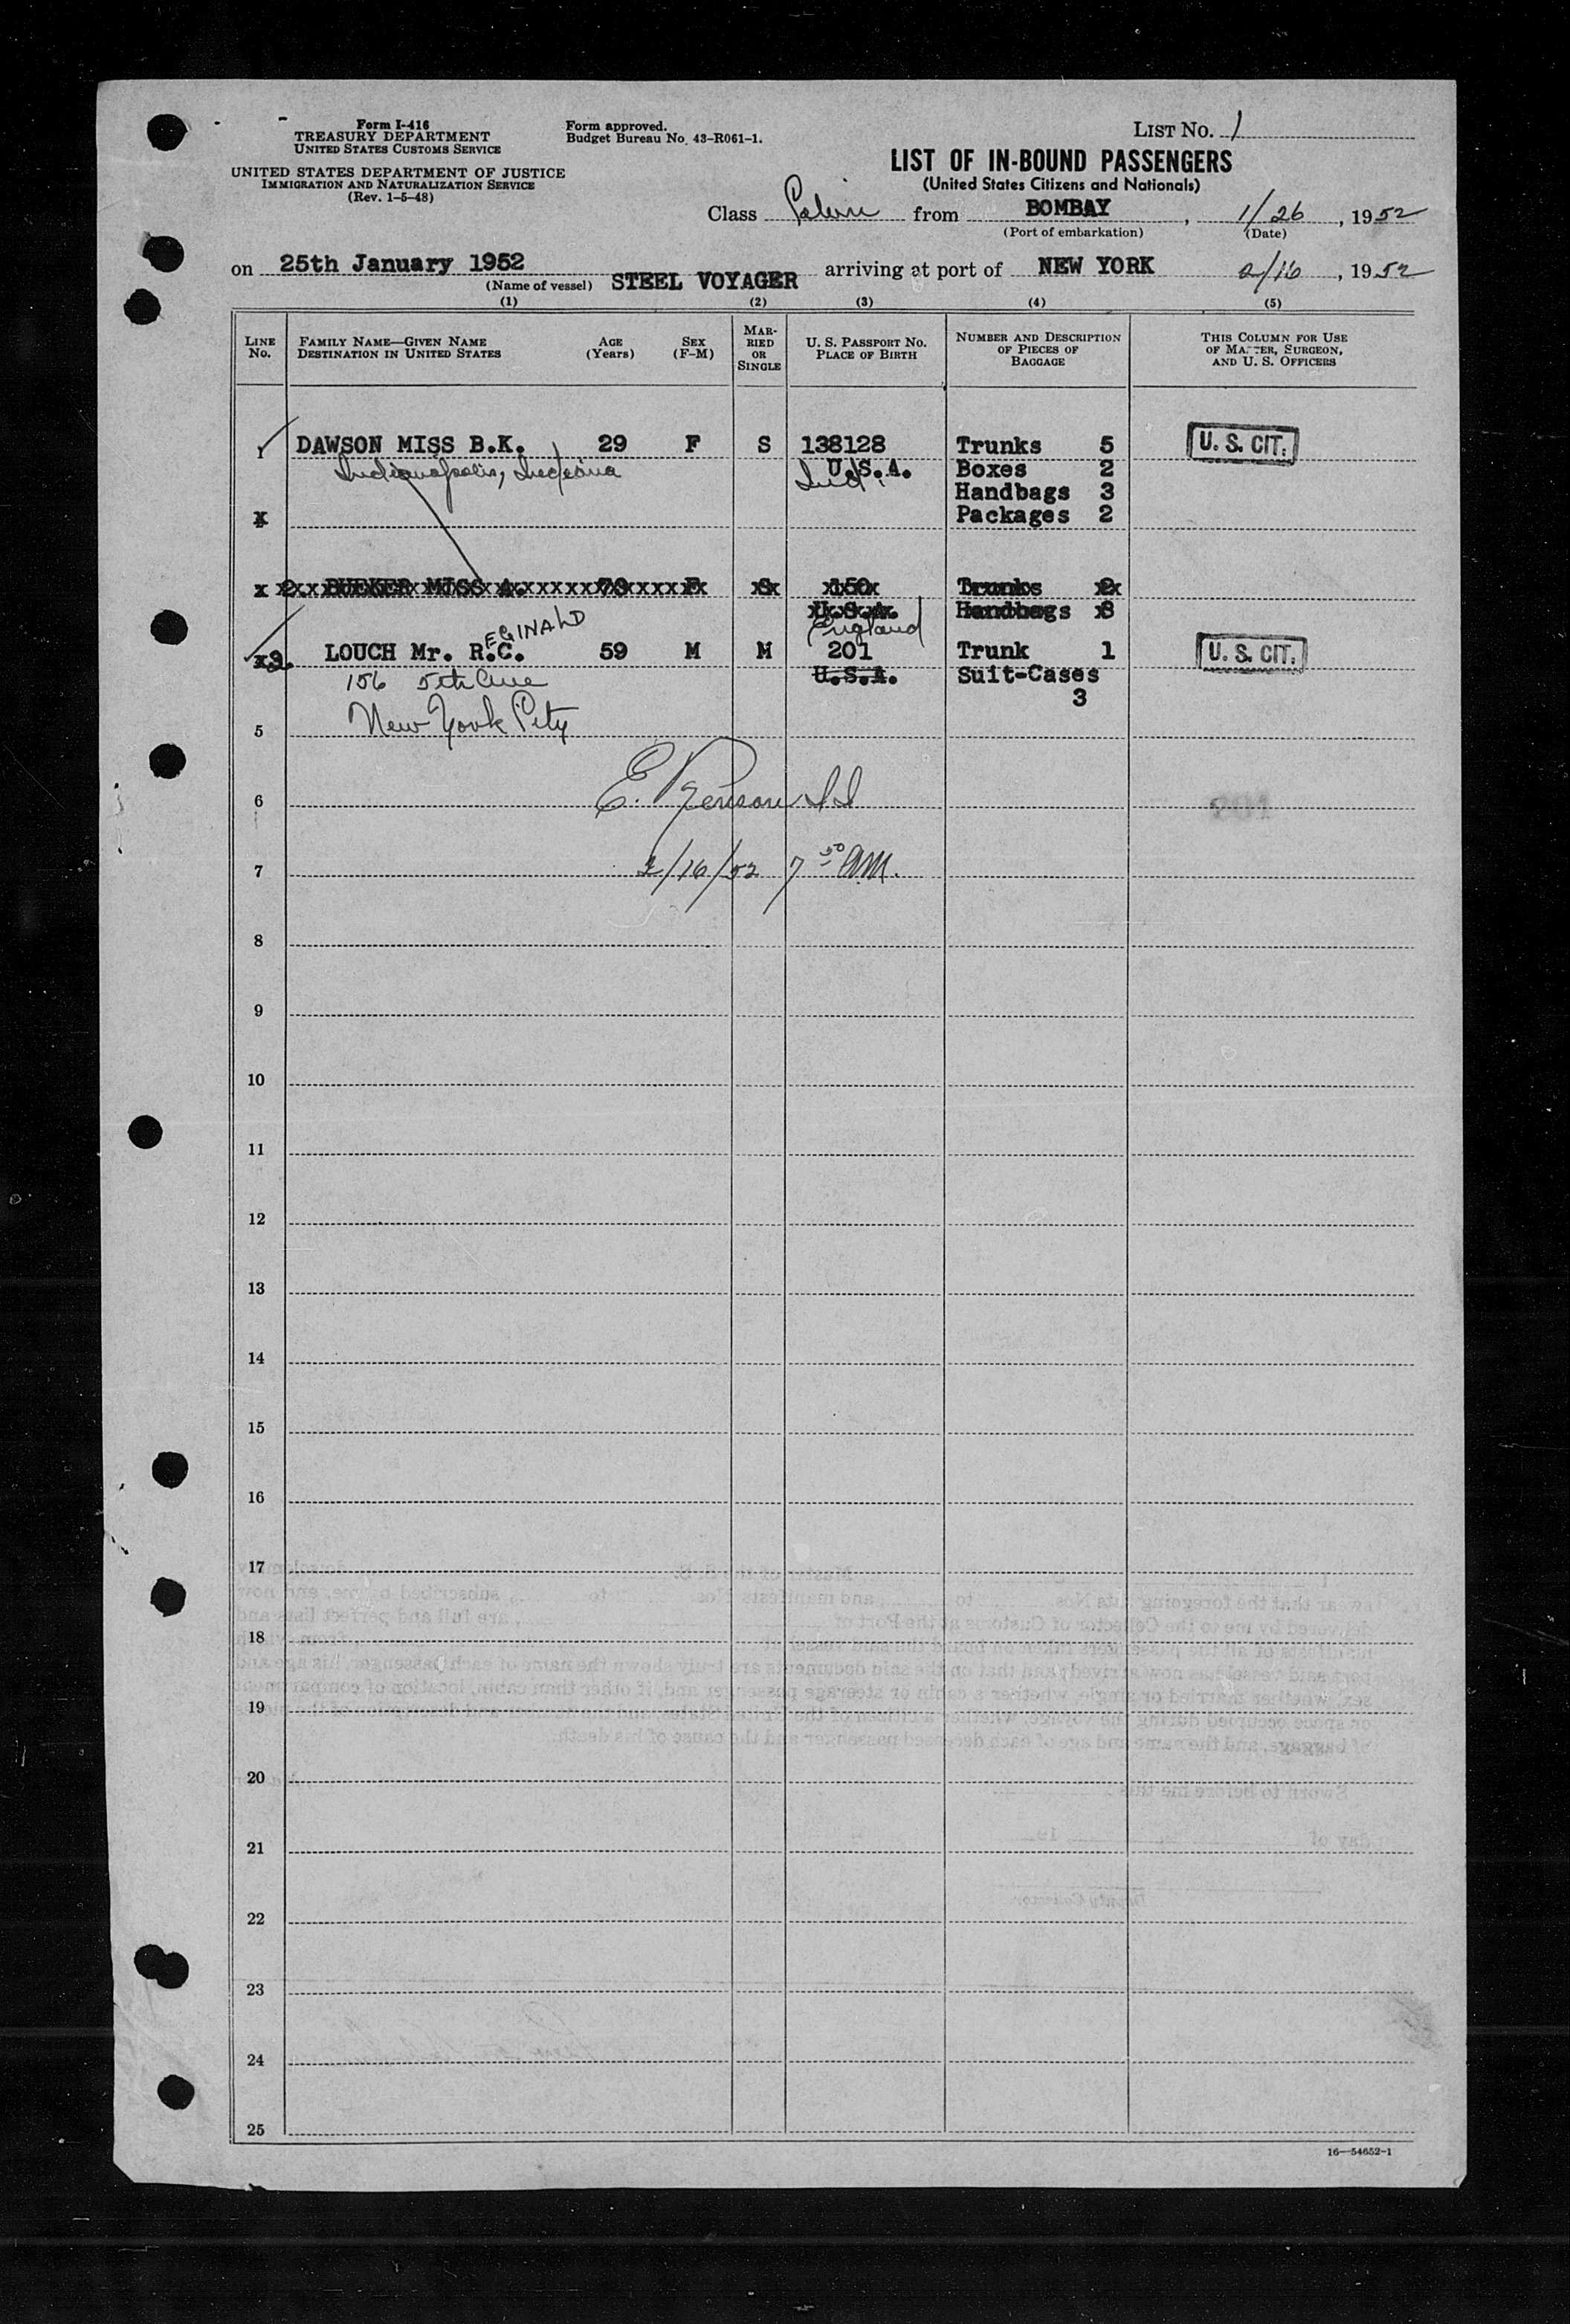 Form I-416
TREASURY DEPARTMENT
UNITED STATES CUSTOMS SERVICE
UNITED STATES DEPARTMENT OF JUSTICE
IMMIGRATION AND NATURALIZATION SERVICE
(Rev. 1-5-48)
Form approved.
Budget Bureau No. 43-R061-1.
LIST No. 1
LIST OF IN-BOUND PASSENGERS
(United States Citizens and Nationals)
Class Cabin from BOMBAY, 1/26, 1952
(Port of embarkation) (Date)
on 25th January 1952 STEEL VOYAGER arriving at port of NEW YORK 2/16, 1952
(Name of vessel)
(1) (2) (3) (4) (5)
LINE No.
FAMILY NAME—GIVEN NAME
DESTINATION IN UNITED STATES
AGE (Years)
SEX (F-M)
MARRIED OR SINGLE
U. S. PASSPORT No.
PLACE OF BIRTH
NUMBER AND DESCRIPTION OF PIECES OF BAGGAGE
THIS COLUMN FOR USE OF MASTER, SURGEON, AND U. S. OFFICERS
1 DAWSON MISS B.K. 29 F S 138128 Trunks 5 U. S. CIT.
Indianapolis, Indiana U.S.A. Boxes 2
Ind. Handbags 3
x Packages 2
x 2. MISS A. 73 F S 150 Trunks 2
U.S.A. Handbags 3
England
x3. LOUCH Mr. R.C. EGINALD 59 M M 201 Trunk 1 U. S. CIT.
156 5th Ave U.S.A. Suit-Cases
3
New York City
5
E. Benson II
6
2/16/52 7 50 AM.
7
8
9
10
11
12
13
14
15
16
17
18
19
20
21
22
23
24
25
16—54652-1